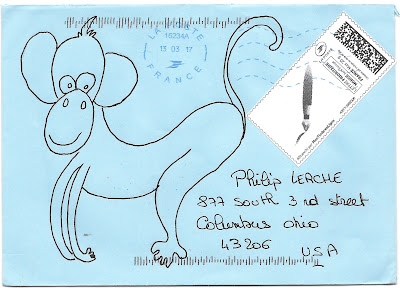 LA POSTE
16234A
13 03 17
FRANCE
Philip LERCHE
877 South 3 rd street
Columbus Ohio
43206
USA